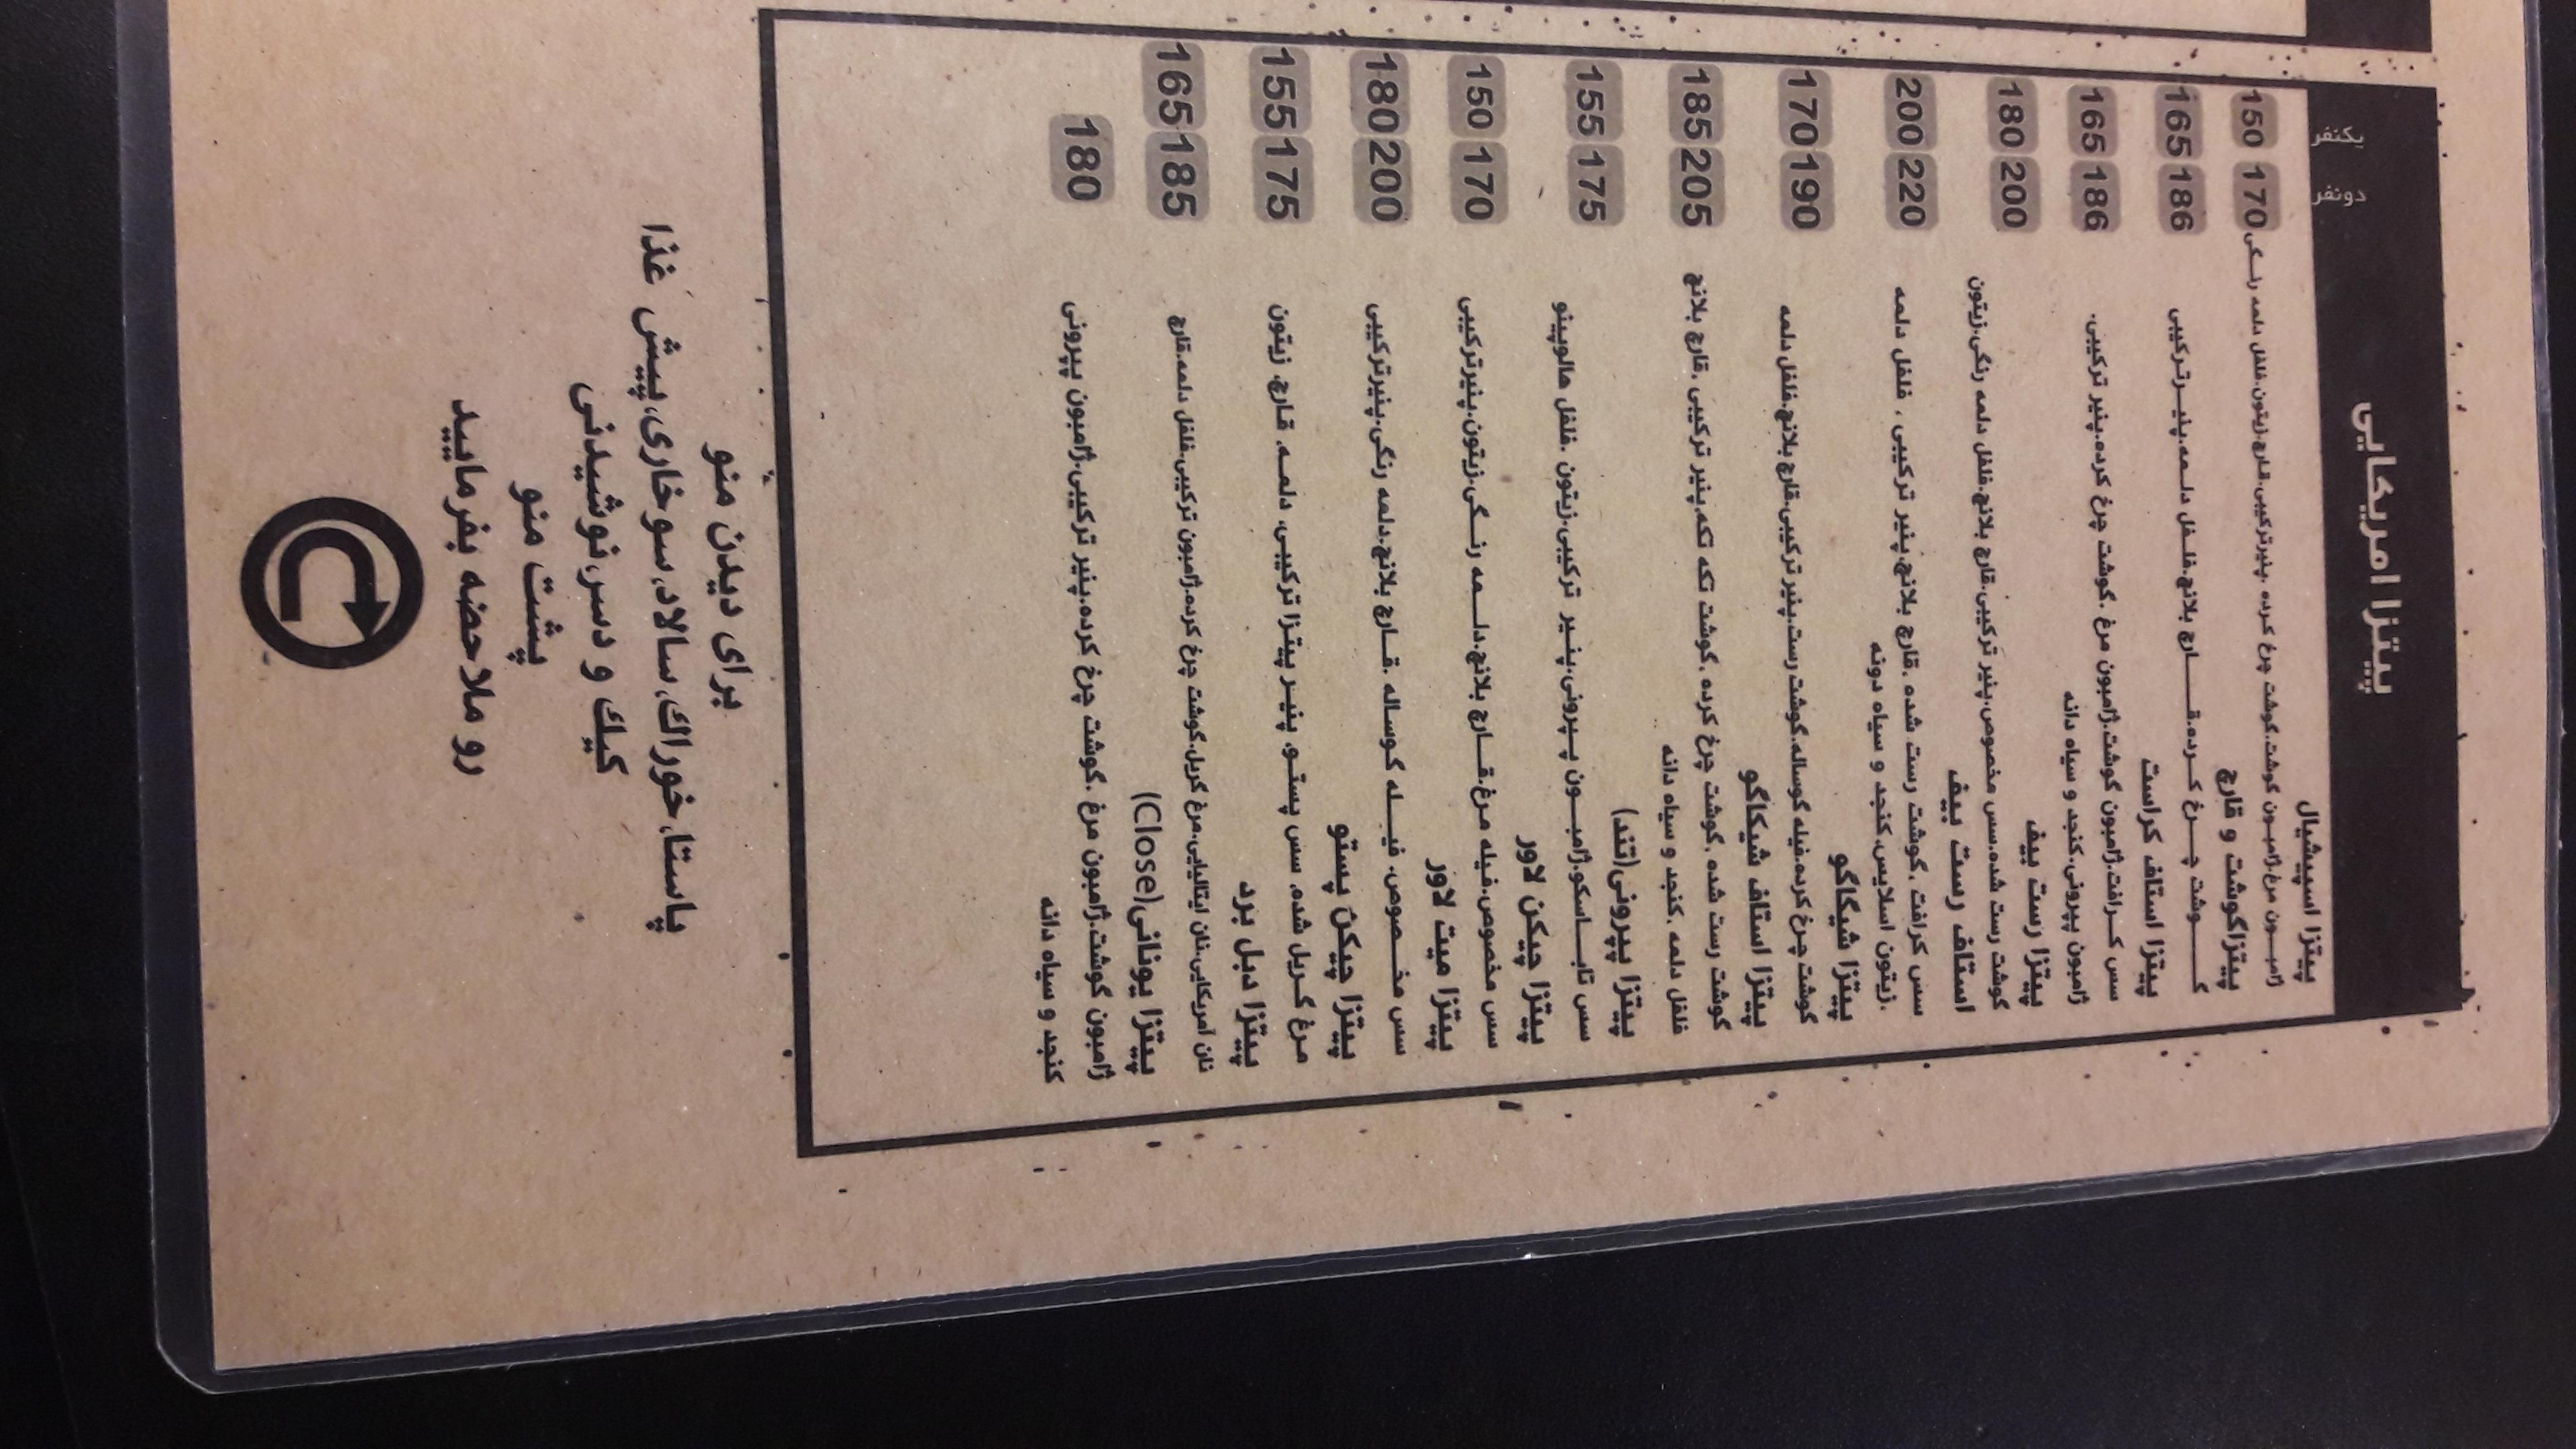 پیتزا امریکایی
یکنفر دونفر
پیتزا اسپیشیال
ژامبون مرغ،ژامبون گوشت،گوشت چرخ کرده ،پنیرترکیبی،قارچ،زیتون،فلفل دلمه رنگی
150 170
پیتزاگوشت و قارچ
گوشت چرخ کرده،قارچ بلانچ،فلفل دلمه،پنیرترکیبی
165 186
پیتزا استاف کراست
سس کرافت،ژامبون گوشت،ژامبون مرغ ،گوشت چرخ کرده،پنیر ترکیبی،
ژامبون پپرونی،کنجد و سیاه دانه
165 186
پیتزا رست بیف
گوشت رست شده،سس مخصوص،پنیر ترکیبی،قارچ بلانچ،فلفل دلمه رنگی،زیتون
180 200
استاف رست بیف
سس کرافت ،گوشت رست شده ،قارچ بلانچ،پنیر ترکیبی ، فلفل دلمه
،زیتون اسلایس،کنجد و سیاه دونه
200 220
پیتزا شیکاگو
گوشت چرخ کرده،فیله گوساله،گوشت رست،پنیر ترکیبی،قارچ بلانچ،فلفل دلمه
170 190
پیتزا استاف شیکاگو
گوشت رست شده ،گوشت چرخ کرده ،گوشت تکه تکه،پنیر ترکیبی ،قارچ بلانچ
فلفل دلمه ،کنجد و سیاه دانه
185 205
پیتزا پپرونی(تند)
سس تاباسکو،ژامبون پپرونی،پنیر ترکیبی،زیتون ،فلفل هالوپینو
155 175
پیتزا چیکن لاور
سس مخصوص،فیله مرغ،قارچ بلانچ،دلمه رنگی،زیتون،پنیرترکیبی
150 170
پیتزا میت لاور
سس مخصوص، فیله گوساله ،قارچ بلانچ،دلمه رنگی،پنیرترکیبی
180 200
پیتزا چیکن پستو
مرغ گریل شده، سس پستو، پنیر پیتزا ترکیبی، دلمه، قارچ، زیتون
155 175
پیتزا دبل برد
نان آمریکایی،نان ایتالیایی،مرغ گریل،گوشت چرخ کرده،ژامبون ترکیبی،فلفل دلمه،قارچ
165 185
پیتزا یونانی(Close)
ژامبون گوشت،ژامبون مرغ ،گوشت چرخ کرده،پنیر ترکیبی،ژامبون پپرونی
کنجد و سیاه دانه
180
برای دیدن منو
پاستا،خوراك،سالاد،سوخاری،پیش غذا
کیك و دسر،نوشیدنی
پشت منو
رو ملاحضه بفرمایید